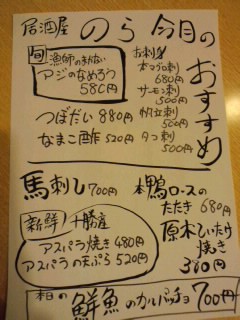 居酒屋 のら 今月の
おすすめ
旬 漁師のまかない
アジのなめろう
580円
お刺身
本マグロ刺
680円
サーモン刺
500円
帆立刺
500円
タコ刺
500円
つぼだい 880円
なまこ酢 520円
馬刺し 700円
本鴨ロースの
たたき 680円
新鮮! 十勝産
アスパラ焼き 480円
アスパラの天ぷら 520円
原木しいたけ
焼き
380円
本日の 鮮魚のカルパッチョ 700円